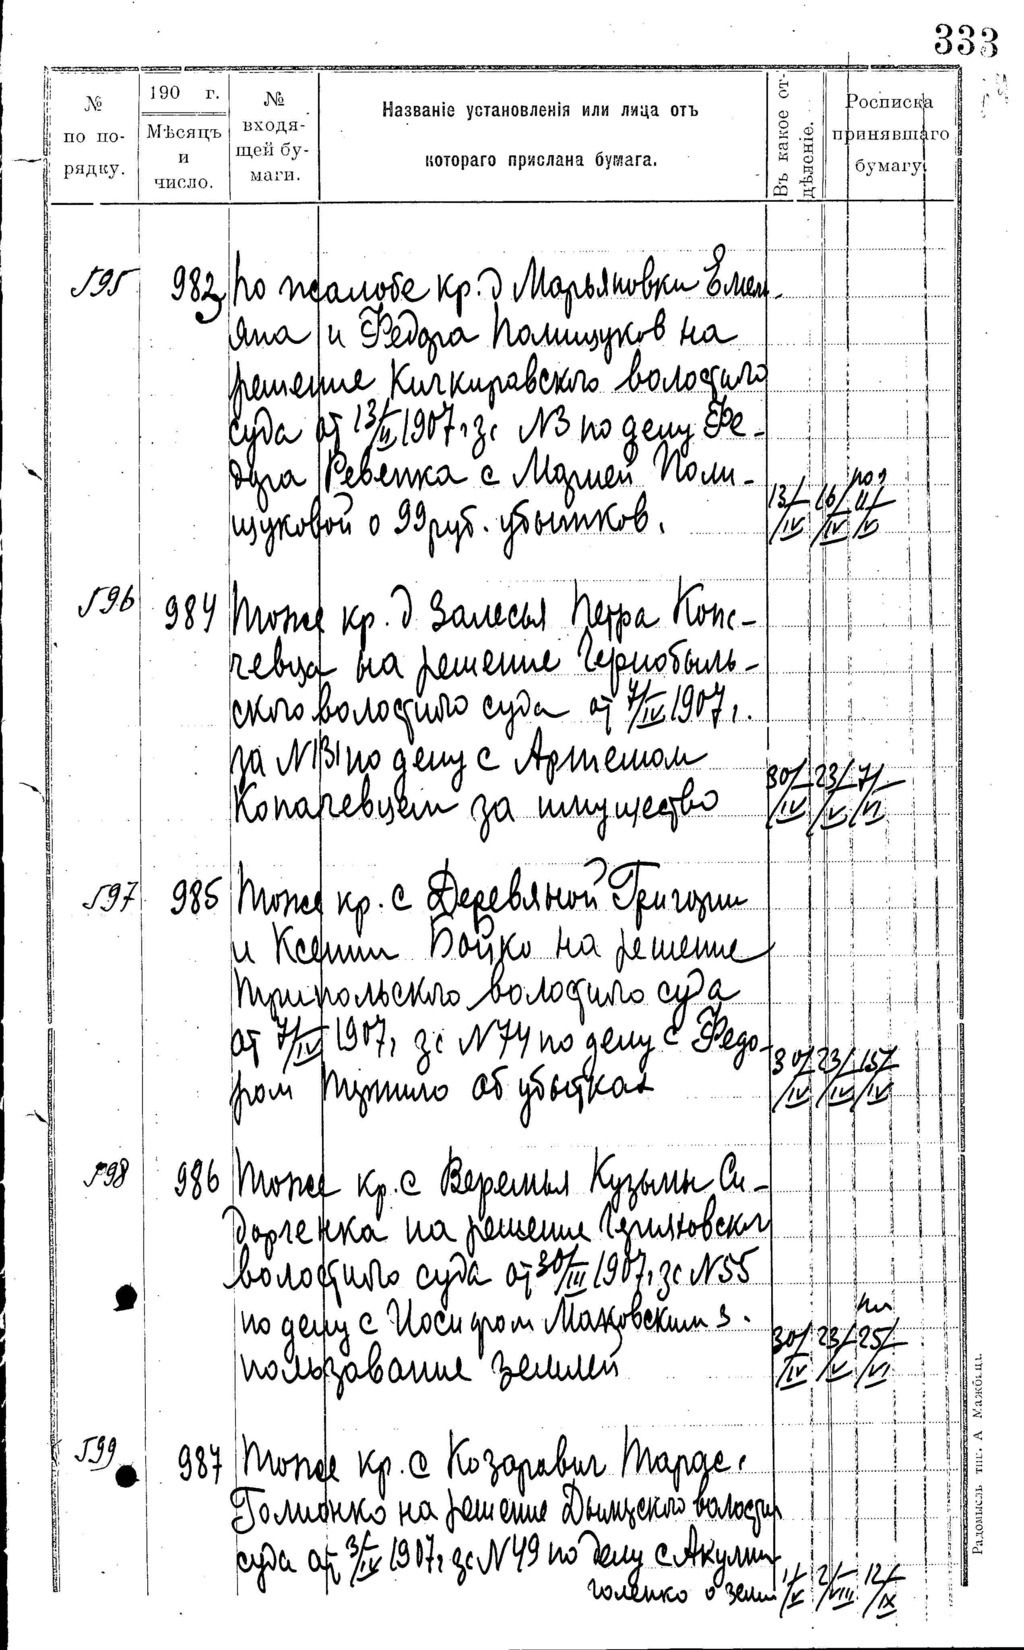 333
№ по по-рядку.
190 г.
Мѣсяцъ и число.
№ входя-щей бу-маги.
Названіе установленія или лица отъ
котораго прислана бумага.
Въ какое от-дѣленіе.
Росписка принявшаго бумагу.
595 983 по жалобе кр. д Марьяновки Емел-
яна и Федора Полищуков на
решение Кичкировского волостного
суда от 13/II 1907 г за N3 по делу Фе-
дора Ревенка с Марией Поли-
щуковой о 99 руб. убытков. 13/IV 16/IV 11/V
596 984 Тоже кр. д Залесья Петра Копа-
чевца на решение Чернобыль-
ского волостного суда от 7/IV 1907 г.
за N131 по делу с Артемом
Копачевцем за имущество 30/IV 23/V 7/VI
597 985 Тоже кр. с Деревяной Григории
и Ксении Бойко на решение
Трипольского волостного суда
от 7/IV 1907 г за N74 по делу с Федо-
ром об убытках 30/IV 23/IV 15/IV
598 986 Тоже кр. с Веремья Кузьмы Си-
дорченка на решение
волостного суда от 30/III 1907 г за N55
по делу с Иосифом Маковским з.
пользование землей 30/IV 23/V 25/VI
599 987 Тоже кр. с Козаравич Тараса
на решение Дымерского волостн
суда от 3/IV 1907 г за N49 по делу с Акулин
голенко о земл 1/V 2/VIII 12/IX
Радомысль тип. А Мажбицъ.